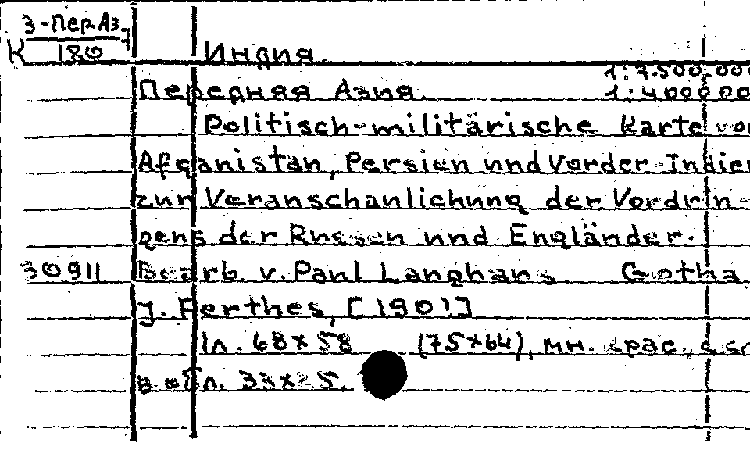 3-Пер.Аз.
К 180
Индия.
1:7.500.000
Передняя Азия. 1:4000000
Politisch-militärische Karte von
Afganistan, Persien und Vorder-Indien
zur Veranschanlichung der Vordrin-
gens der Russen und Engländer.
30911 Bearb. v. Paul Langhans Gotha,
J. Perthes, [1901]
1л. 68×58 (75×64), мн. крас.,
в обл. 33×25.